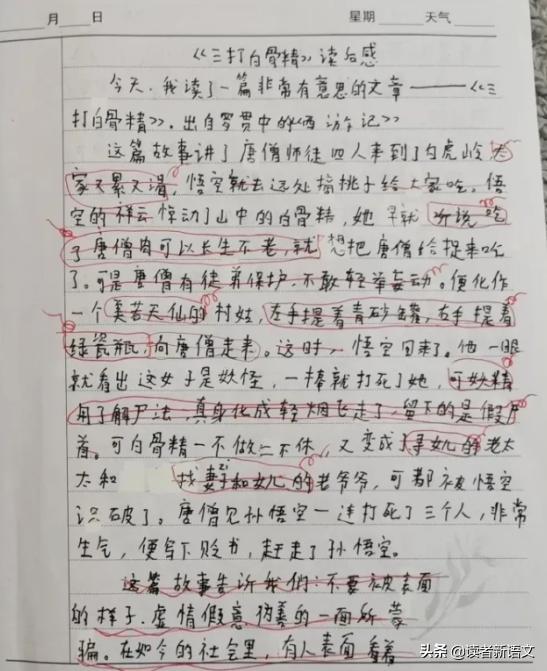 月 日 星期 天气
《三打白骨精》读后感
今天,我读了一篇非常有意思的文章——《三
打白骨精》,出自罗贯中的《西游记》
这篇故事讲了唐僧师徒四人来到了白虎岭,大
家又累又渴,悟空就去远处摘桃子给大家吃。悟
空的祥云惊动了山中的白骨精,她早就听说吃
了唐僧肉可以长生不老,就想把唐僧给捉来吃
了。可是唐僧有徒弟保护,不敢轻举妄动。便化作
一个美若天仙的村姑,左手提着青砂罐,右手提着
绿瓷瓶,向唐僧走来。这时,悟空回来了。他一眼
就看出这女子是妖怪,一棒就打死了她,可妖精
用了解尸法,真身化成轻烟飞走了,留下的是假尸
首。可白骨精一不做二不休,又变成了寻女儿的老太
太和 找妻子和女儿的老爷爷,可都被悟空
识破了。唐僧见孙悟空一连打死了三个人,非常
生气,便写下贬书,赶走了孙悟空。
这篇故事告诉我们:不要被表面
的样子,虚情假意,伪善的一面所蒙
骗。在如今的社会里,有人表面看着
头条 @读者新语文